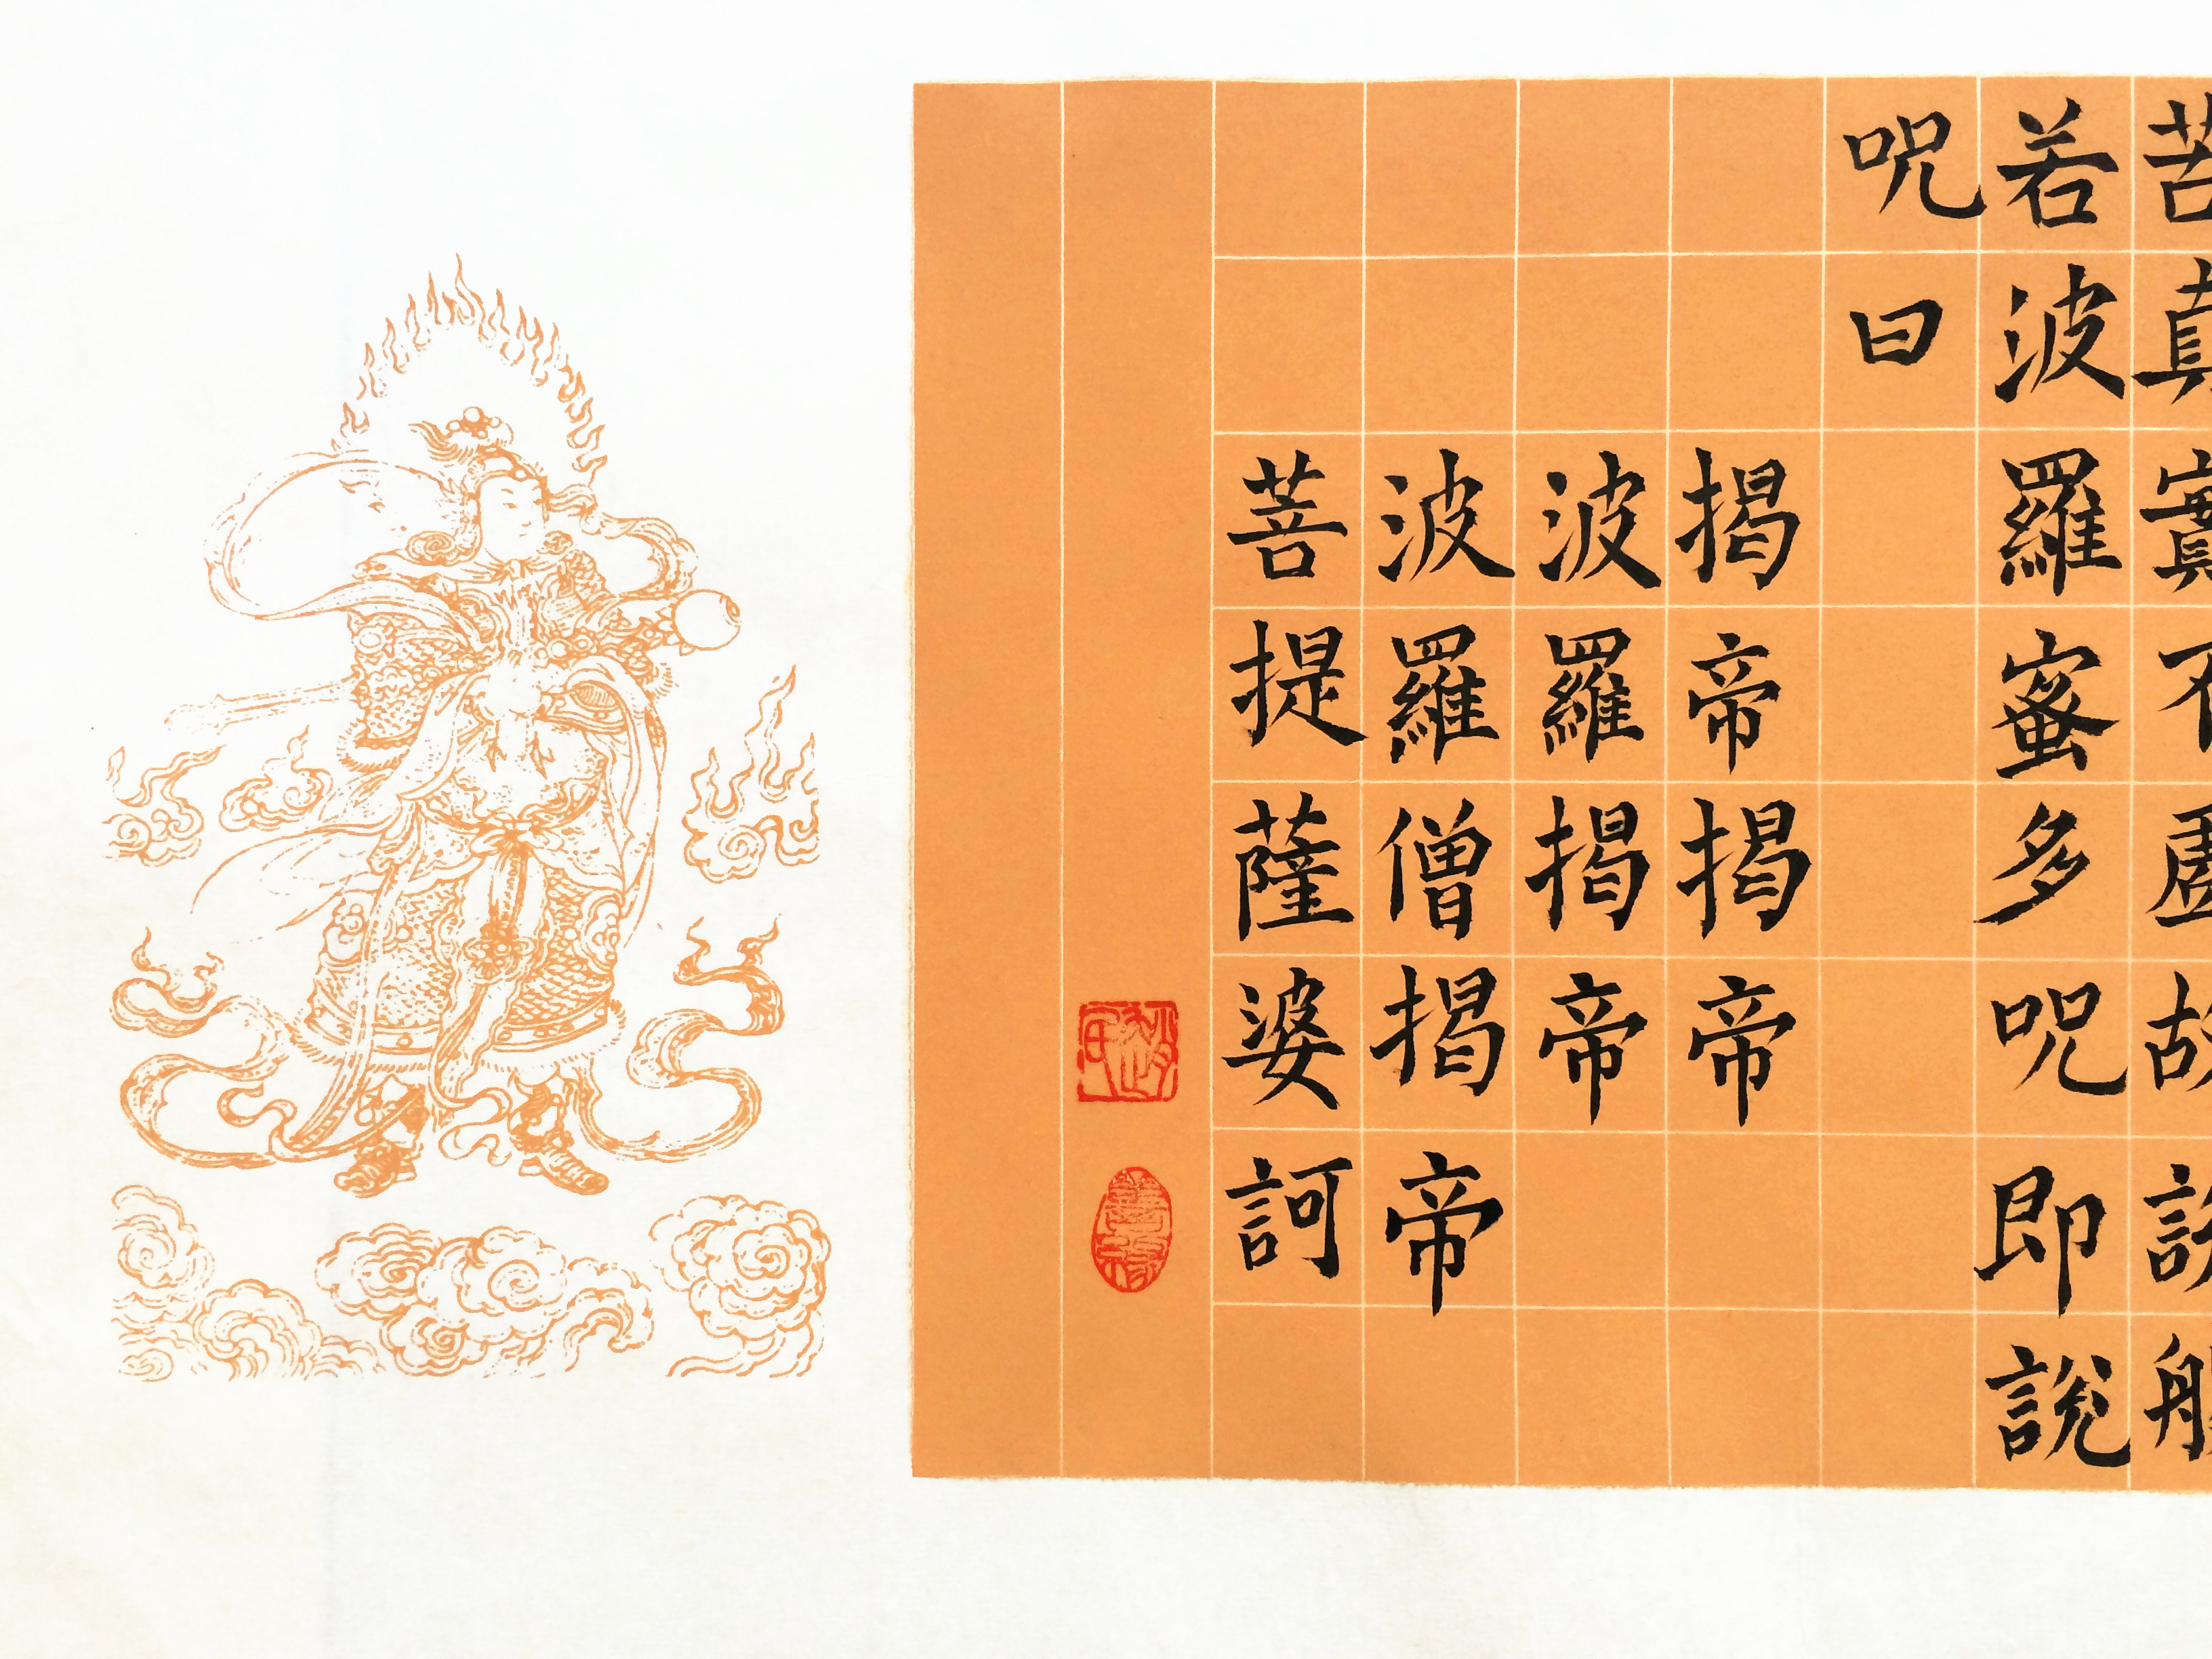 苦真實不虛故說般
若波羅蜜多咒即說
咒曰
揭帝揭帝
波羅揭帝
波羅僧揭帝
菩提薩婆訶